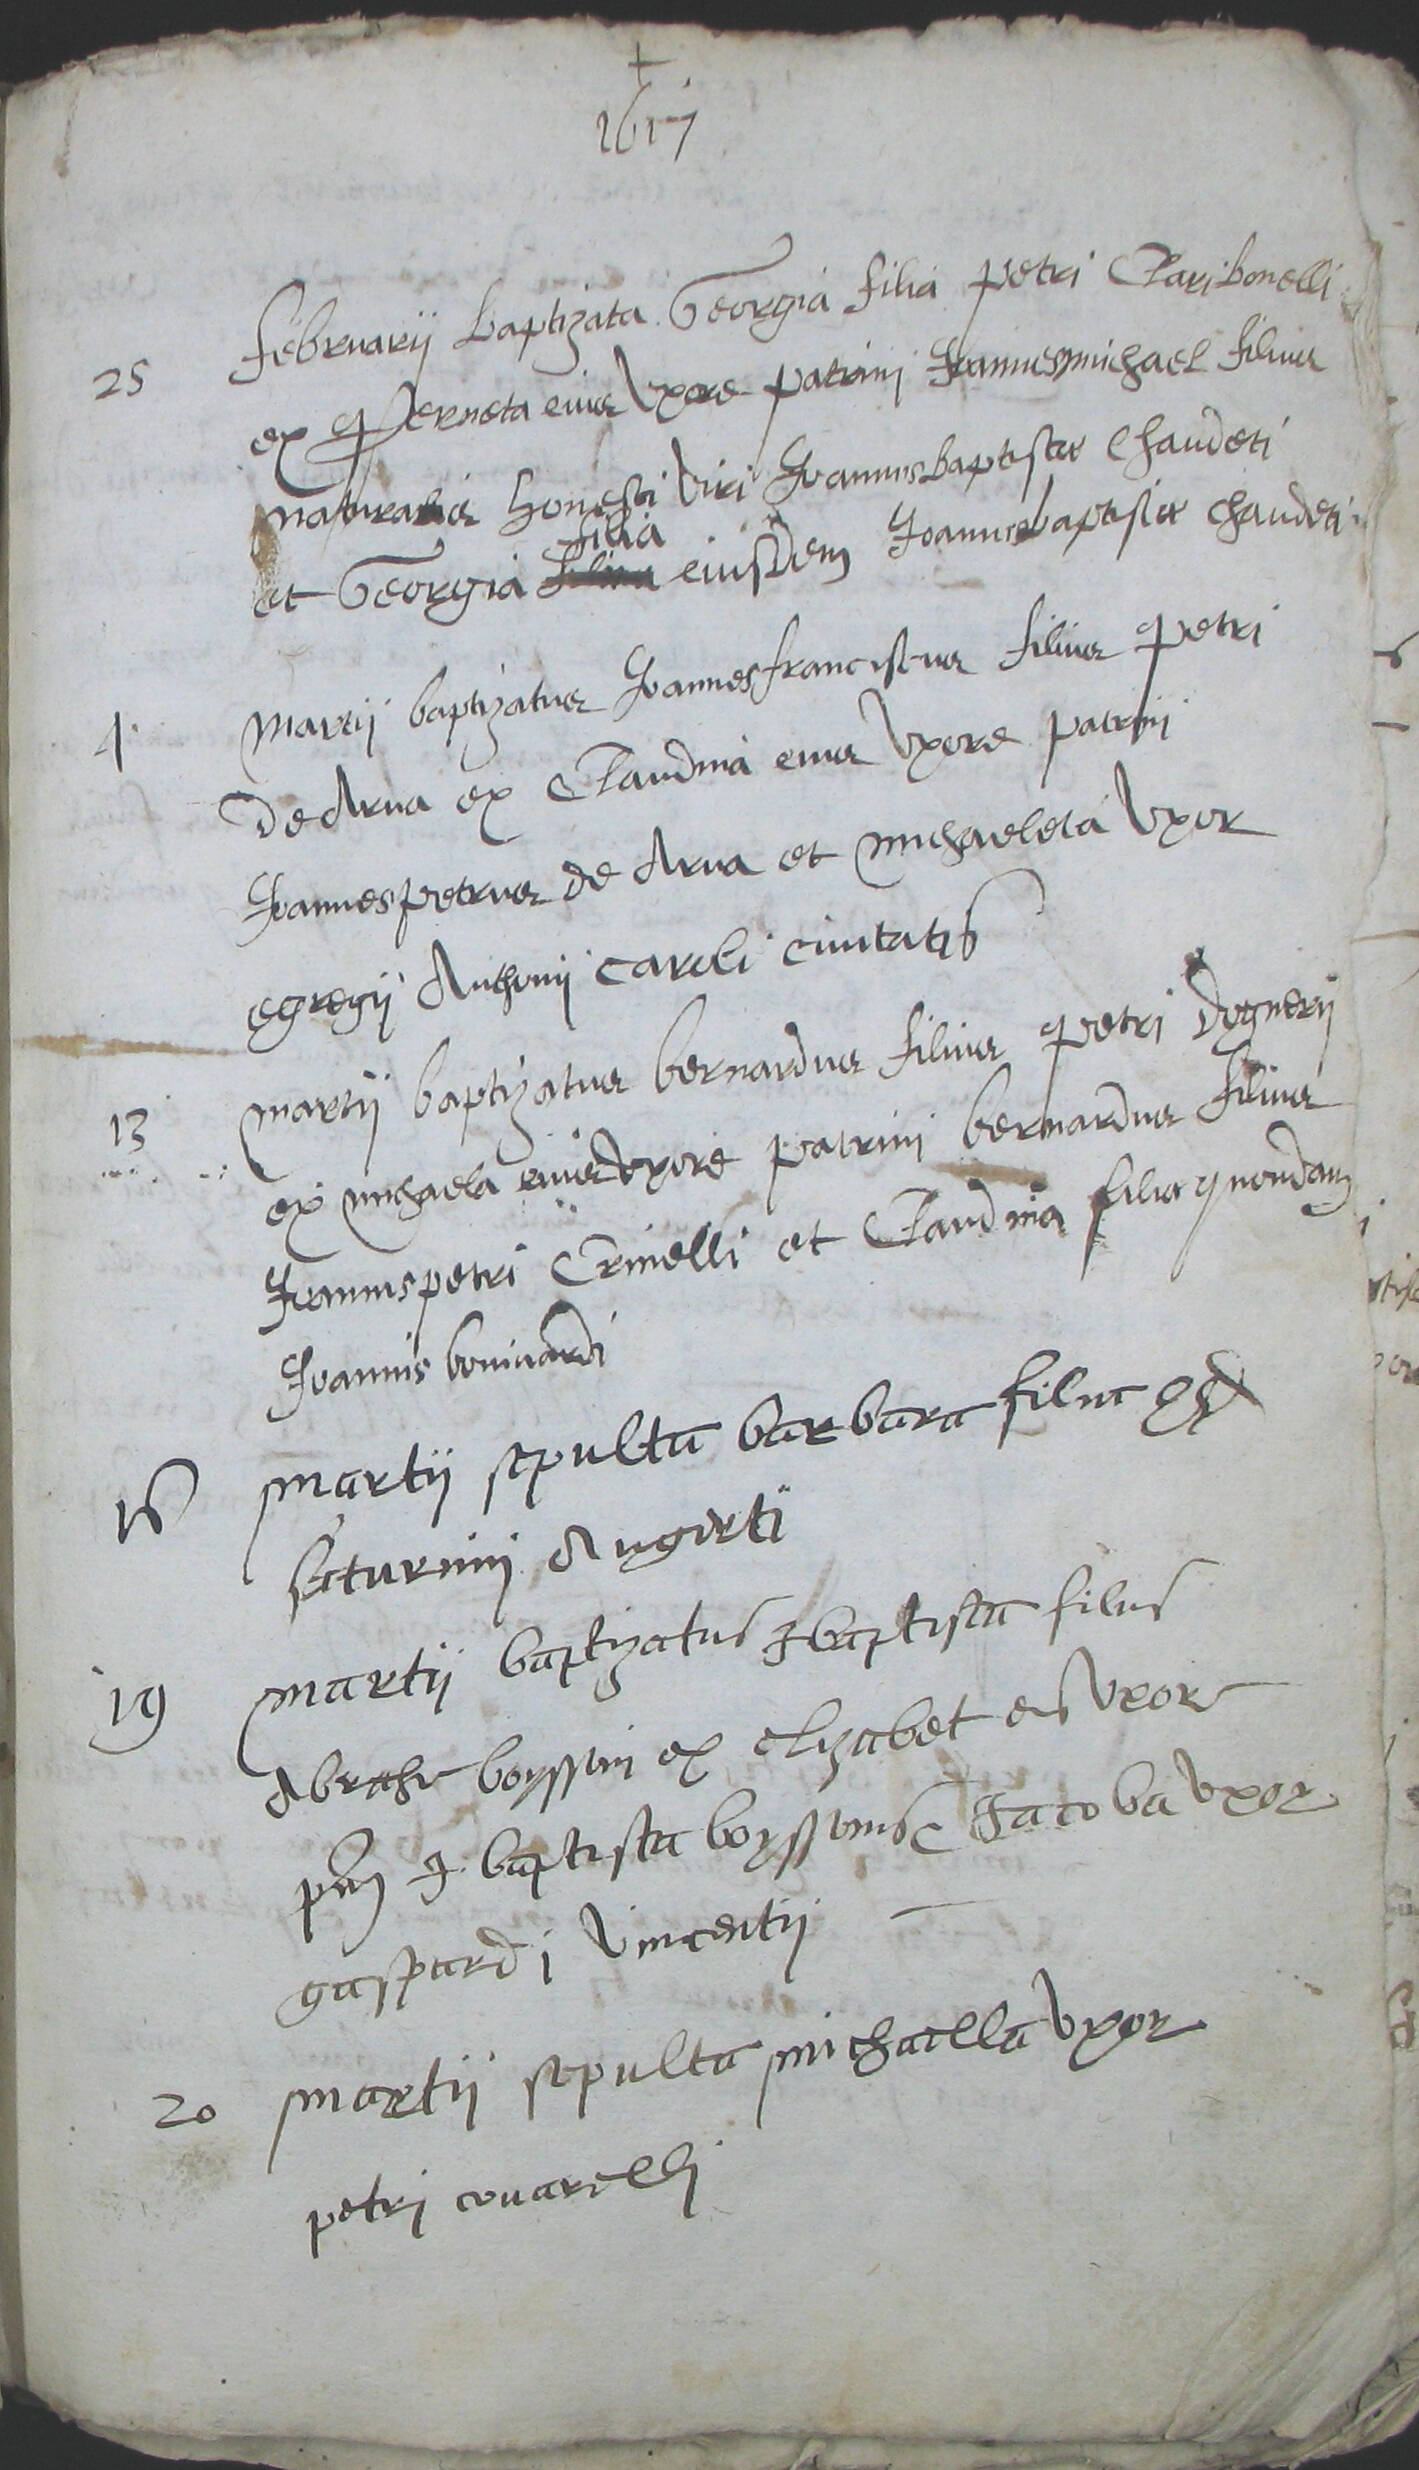 +
1617
25 februarij baptizata Georgia filia petri Claribonelli
ex Perneta eius Uxore patrini Joannesmichael filius
naturalis honesti Viri Joannisbaptiste Chaudeti
filia
et Georgia eiusdem Joannisbaptiste chaudeti
4 Martij baptizatus Joannesfranciscus filius Petri
De Arua ex Claudina eius Uxore patrini
Joannespetrus de Arua et michaeleta Uxor
egregij Anthonij caroli ciuitatis
13 martij baptizatus bernardus filius Petri Dognerij
ex michaela eius Uxore patrini bernardus filius
Joannispetri Crinelli et Claudina filia quondam
Joannis boniuardi
martij sepulta barbara filia
saturnini Augerti
19 martij baptizatus J baptista filius
Abrahe boyssoni ex elizabet eius Uxore
prni J. baptista boyssonus e Jacoba Uxor
gaspardi Vincentij
20 martij sepulta michaella Uxor
petri couarelli